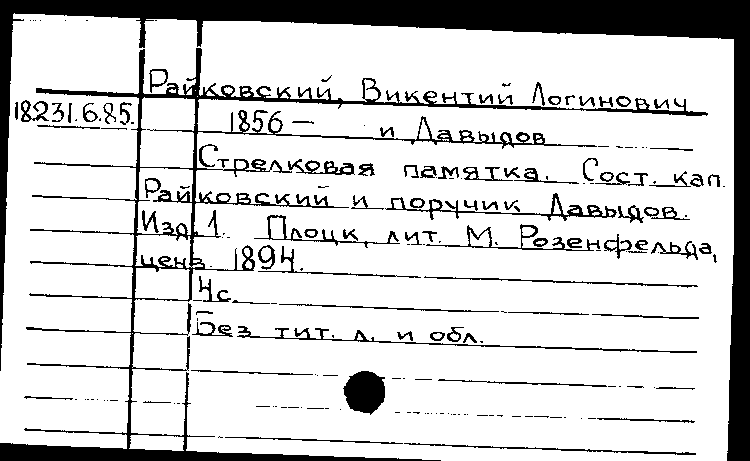 Райковский, Викентий Логинович
18231.6.85. 1856 — и Давыдов
Стрелковая памятка. Сост. кап.
Райковский и поручик Давыдов.
Изд. 1. Плоцк, лит. М. Розенфельда,
ценз. 1894.
4с.
Без тит. л. и обл.